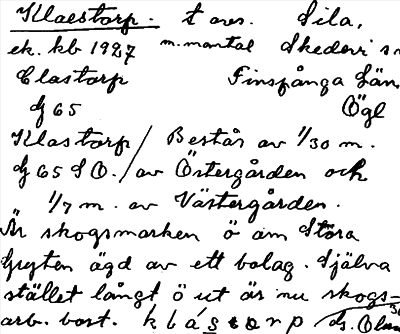 Klaestorp. t ores. Sila,
ek. kb 1927 m. mantal Skedevi sn
Clastorp Finspånga Län
G 65 Ögl
Klastorp / Består av 1/30 m.
G 65 S O. / av Östergården och
1/7 m. av Västergården.
Är skogsmarken ö om Stora
Gryten ägd av ett bolag. Själva
stället långt ö ut är nu skogs-
arb. bost. klåstorp